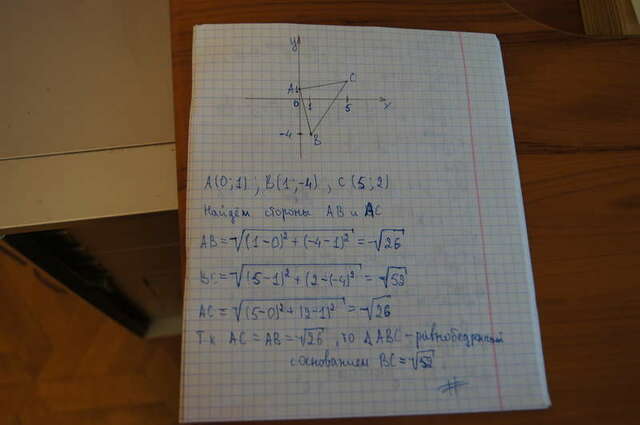 y
A 1 C
0 1 5 x
-4 B
A(0;1) ; B(1;-4) , C(5;2)
Найдём стороны AB и AC
AB=√(1-0)²+(-4-1)² = √26
BC=√(5-1)²+(2-(-4)² = √52
AC=√(5-0)²+(2-1)² = √26
Т.к AC=AB=√26 , то ΔABC-равнобедренный
с основанием BC=√52.
#